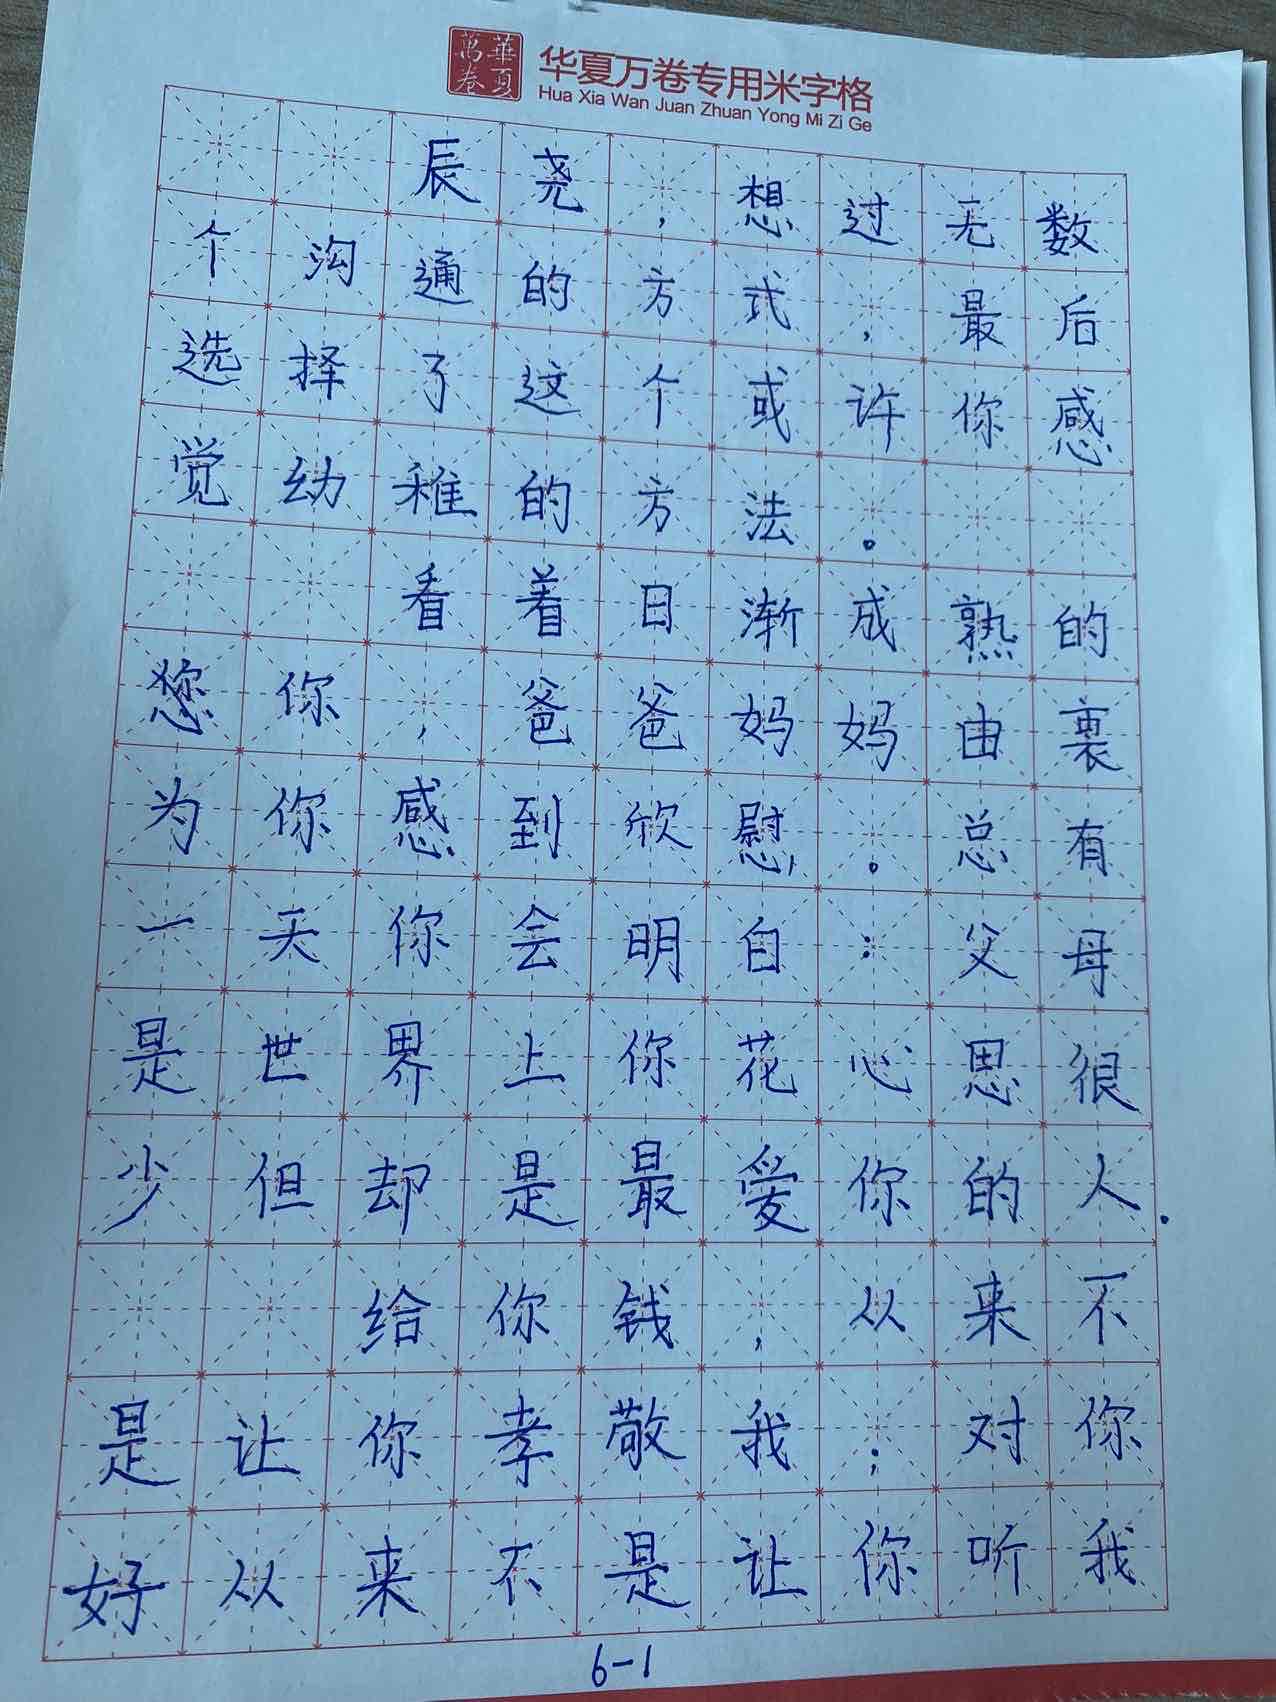 華夏萬卷
华夏万卷专用米字格
Hua Xia Wan Juan Zhuan Yong Mi Zi Ge
辰尧，想过无数
个沟通的方式，最后
选择了这个或许你感
觉幼稚的方法。
看着日渐成熟的
你，爸爸妈妈由衷
为你感到欣慰。总有
一天你会明白：父母
是世界上你花心思很
少但却是最爱你的人.
给你钱，从来不
是让你孝敬我；对你
好从来不是让你听我
6-1